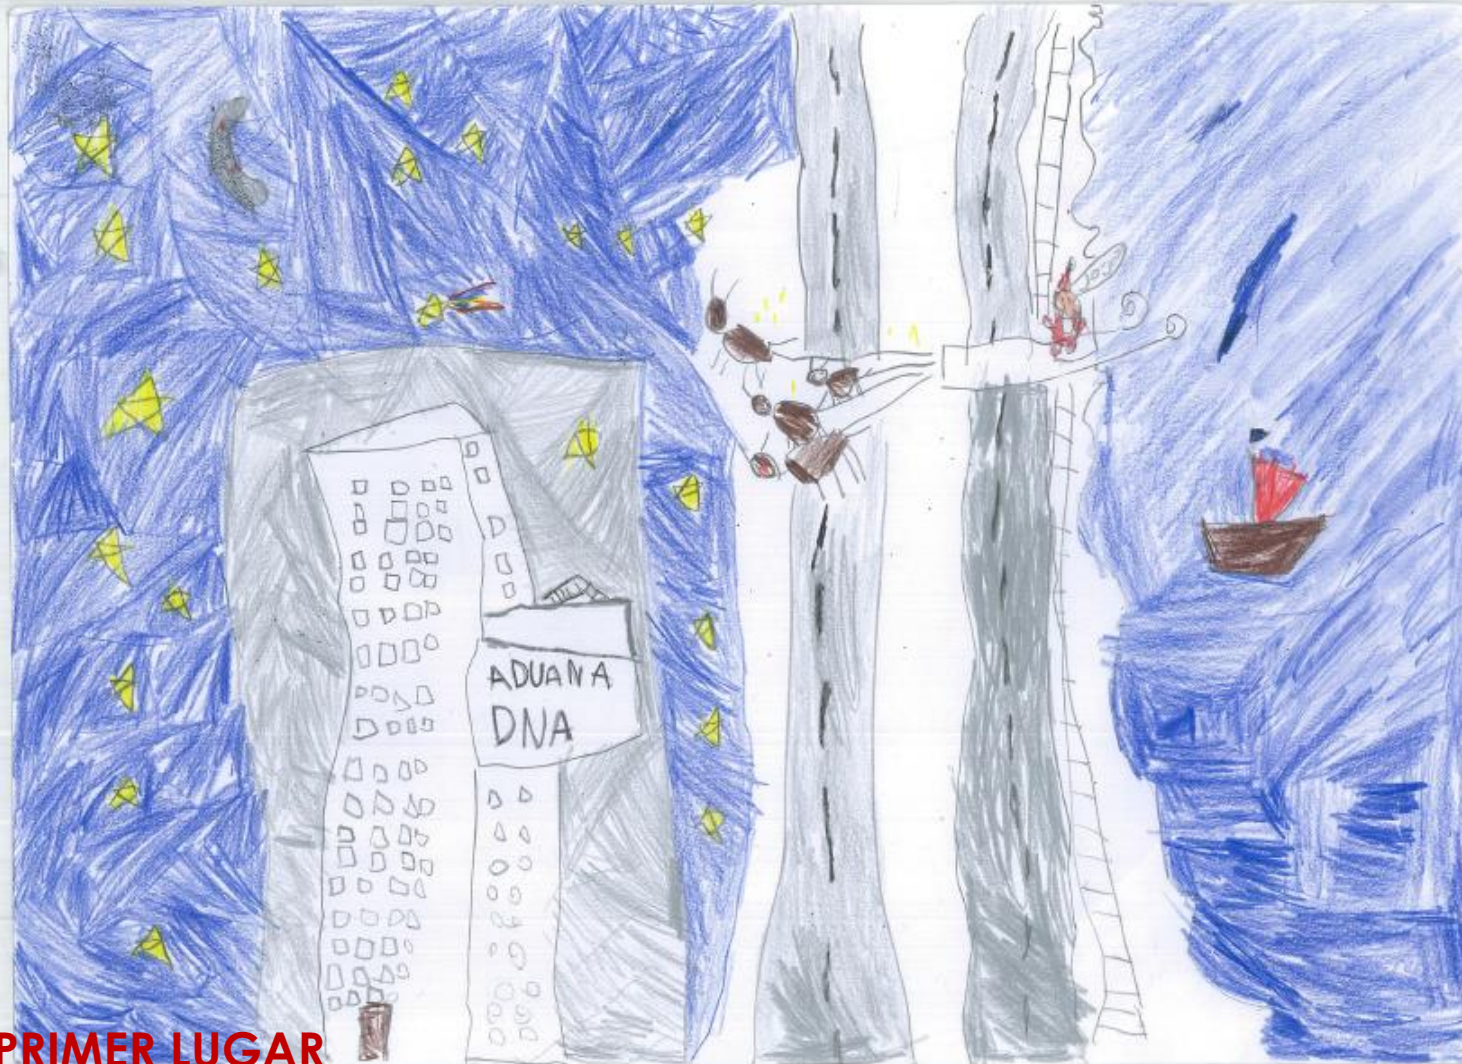 ADUANA
DNA
PRIMER LUGAR